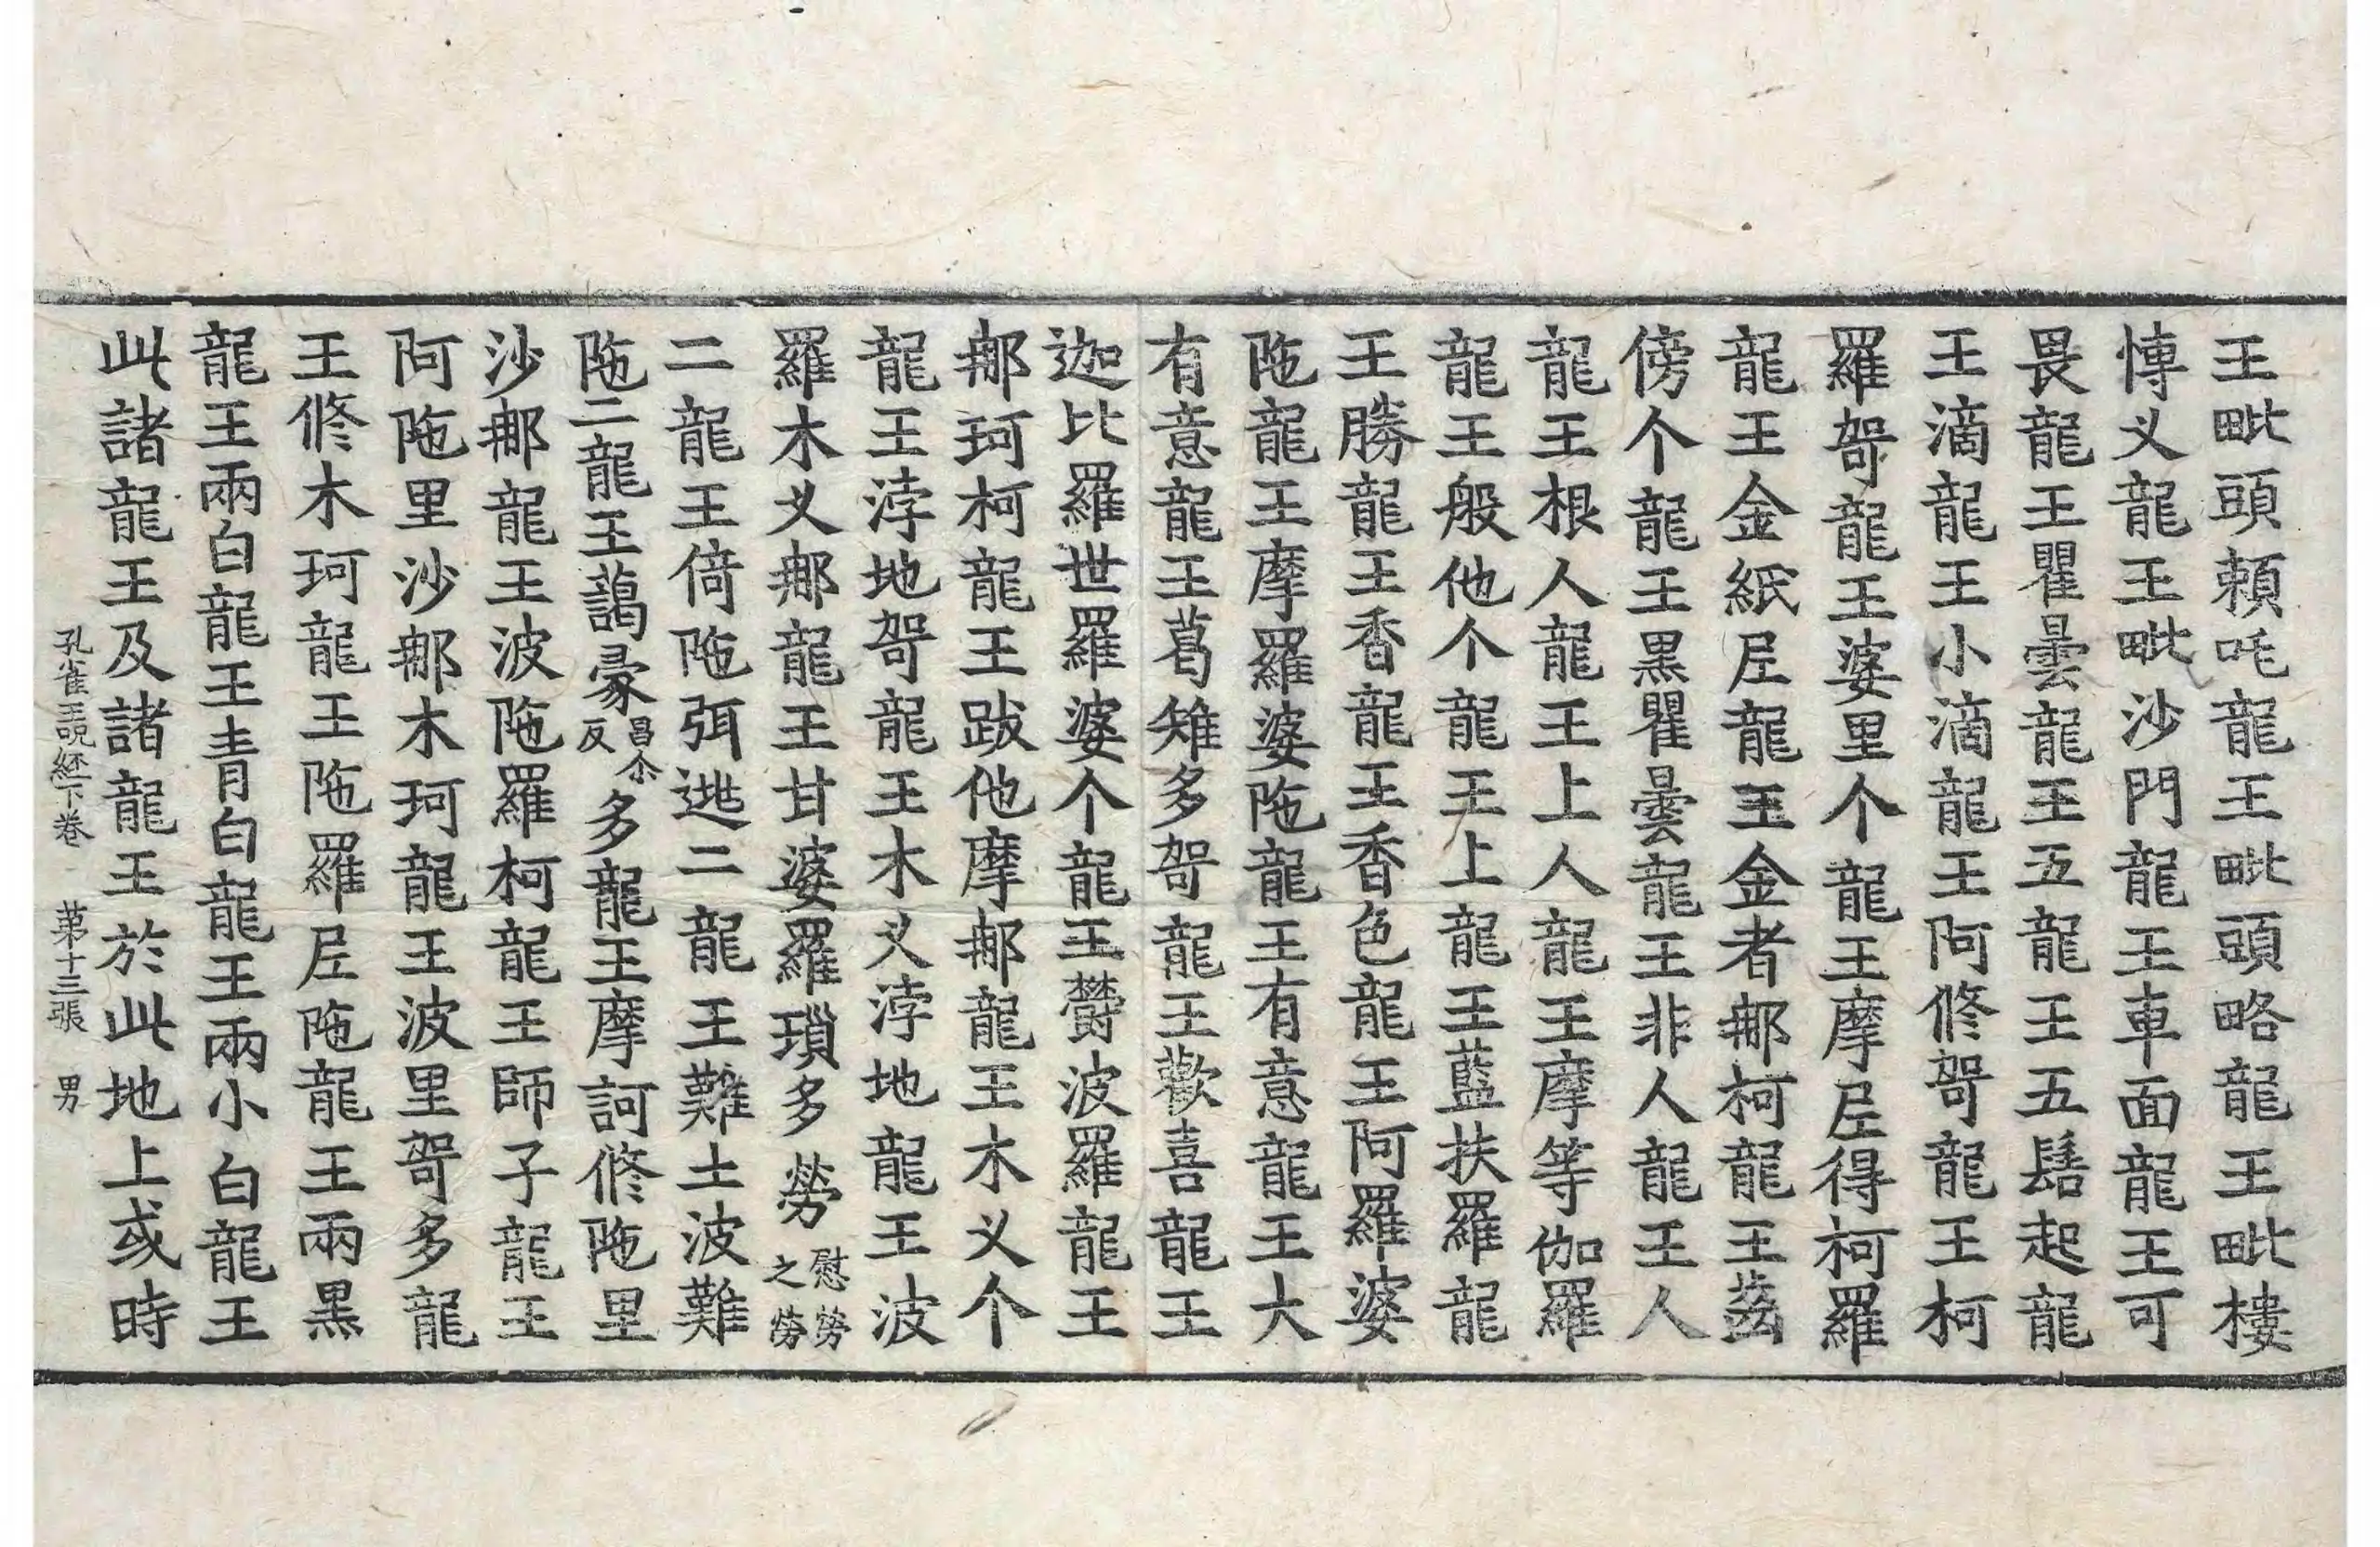 王毗頭頼吒龍王毗頭略龍王毗樓
愽义龍王毗沙門龍王車面龍王可
畏龍王瞿曇龍王五龍王五髻起龍
王滴龍王小滴龍王阿修哿龍王柯
羅哿龍王婆里个龍王摩𡰱得柯羅
龍王金紙𡰱龍王金者那柯龍王齒
傍个龍王黒瞿曇龍王非人龍王人
龍王根人龍王上人龍王摩等伽羅
龍王般他个龍王上龍王藍扶羅龍
王勝龍王香龍王香色龍王阿羅婆
陁龍王摩羅婆陁龍王有意龍王大
有意龍王葛雉多哿龍王歡喜龍王
迦比羅世羅婆个龍王欝波羅龍王
那珂柯龍王跋他摩那龍王木义个
龍王浡地哿龍王木义浡地龍王波
羅木义那龍王甘婆羅瑣多勞慰勞之勞
二龍王倚陁弭逃二龍王難土波難
陁二龍王藹㝹昌尒反多龍王摩訶修陁里
沙那龍王波陁羅柯龍王師子龍王
阿陁里沙那木珂龍王波里哿多龍
王修木珂龍王陁羅𡰱陁龍王兩黒
龍王兩白龍王青白龍王兩小白龍王
此諸龍王及諸龍王於此地上或時
孔雀王說經下卷 第十三張 男